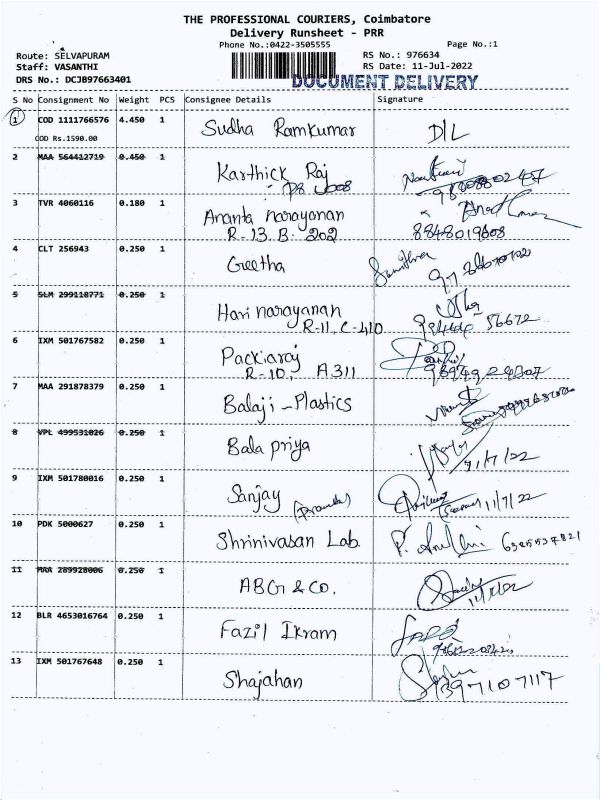 THE PROFESSIONAL COURIERS, Coimbatore
Delivery Runsheet - PRR
Phone No.:0422-3505555 Page No.:1
Route: SELVAPURAM RS No.: 976634
Staff: VASANTHI RS Date: 11-Jul-2022
DRS No.: DCJB97663401 DOCUMENT DELIVERY
S No Consignment No Weight PCS Consignee Details Signature
1 COD 1111766576 4.450 1 Sudha Ramkumar D/L
COD Rs.1590.00
2 MAA 564412719 0.450 1 Karthick Raj
3 TVR 4060116 0.180 1 Ananta narayanan
R-13 B- 202 8848019608
4 CLT 256943 0.250 1 Geetha
5 SLM 299118771 0.250 1 Hari narayanan
R-11, C-410
6 IXM 501767582 0.250 1 Packiaraj
R-10, A311
7 MAA 291878379 0.250 1 Balaji - Plastics
8 VPL 499531026 0.250 1 Bala priya
11/7/22
9 IXM 501780016 0.250 1 Sanjay
11/7/22
10 PDK 5000627 0.250 1 Shrinivasan Lab.
11 MAA 289928006 0.250 1 ABG & CO.
11/7/22
12 BLR 4653016764 0.250 1 Fazil Ikram
13 IXM 501767648 0.250 1 Shajahan